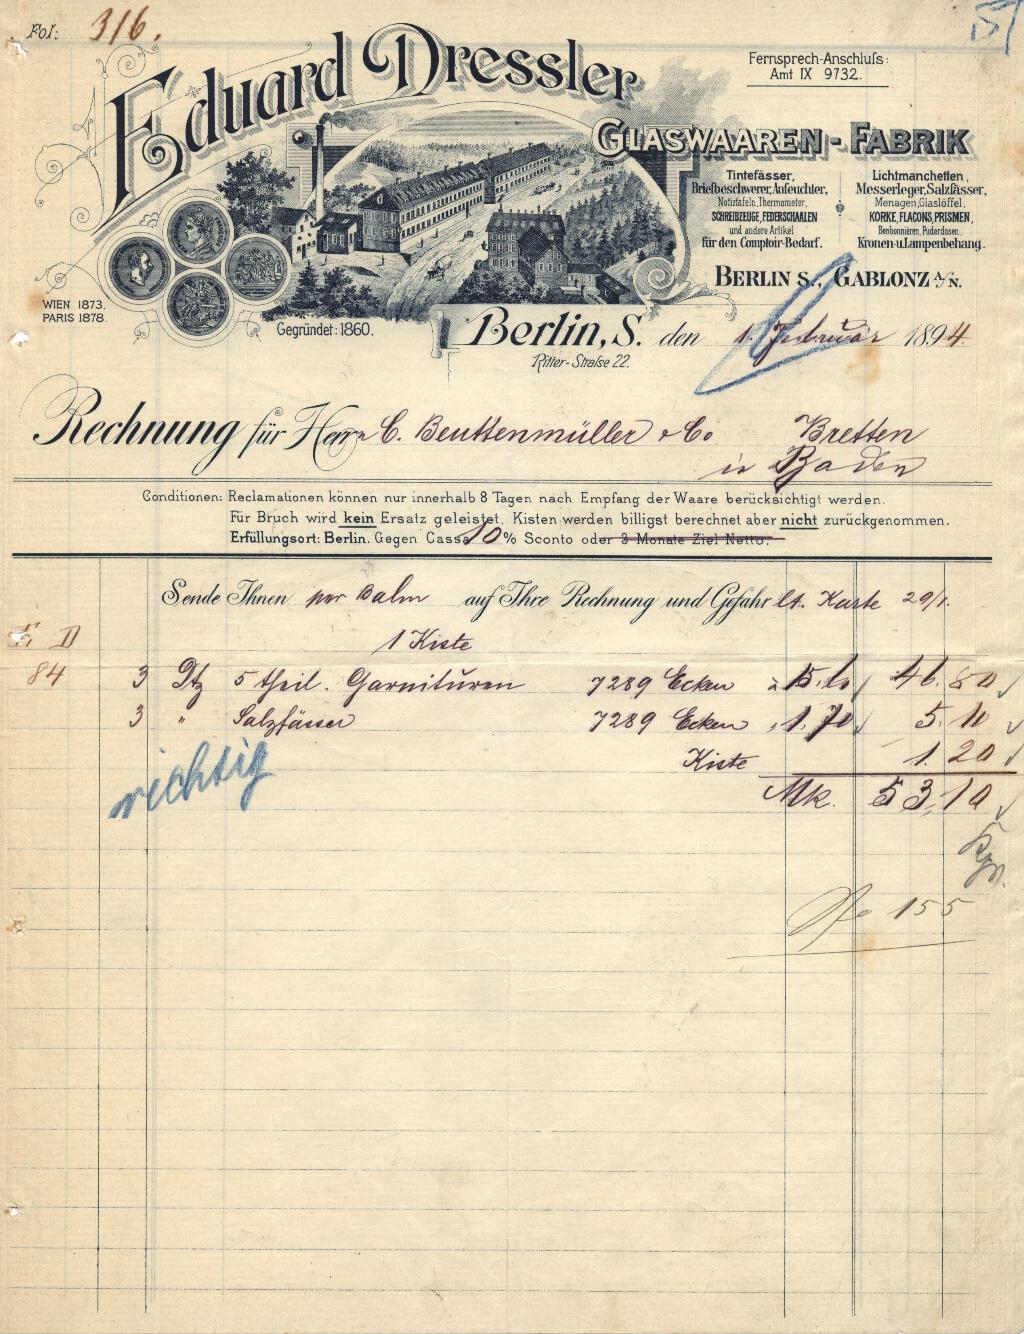 Fol: 316.
57
Eduard Dressler
Fernsprech-Anschluſs:
Amt IX 9732.
GLASWAAREN-FABRIK
Tintefässer,
Briefbeschwerer, Anfeuchter,
Notiztafeln, Thermometer,
SCHREIBZEUGE, FEDERSCHAALEN
und andere Artikel
für den Comptoir-Bedarf.
Lichtmanchetten,
Messerleger, Salzfässer,
Menagen, Glaslöffel,
KORKE, FLACONS, PRISMEN,
Bonbonnièren, Puderdosen,
Kronen-u. Lampenbehang.
BERLIN S., GABLONZ A/N.
WIEN 1873.
PARIS 1878.
Gegründet: 1860.
Berlin, S. den 1. Februar 1894
Ritter-Straſse 22.
Rechnung für Herrn C. Beuttenmüller & Co Bretten
in Baden
Conditionen: Reclamationen können nur innerhalb 8 Tagen nach Empfang der Waare berücksichtigt werden.
Für Bruch wird kein Ersatz geleistet. Kisten werden billigst berechnet aber nicht zurückgenommen.
Erfüllungsort: Berlin. Gegen Cassa 10% Sconto oder 3 Monate Ziel Netto.
Sende Ihnen per Bahn auf Ihre Rechnung und Gefahr lt. Karte 29/1.
E D 1 Kiste
84 3 Dtz 5 theil. Garnituren 7289 Ecken à 15.60 46.80
3 " Salzfässer 7289 Ecken " 1.70 5.10
Kiste 1.20
richtig
Mk. 53,10
No 155